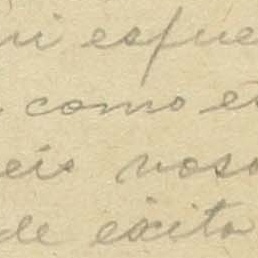 mi esfue
como es
eis voso
de éxito